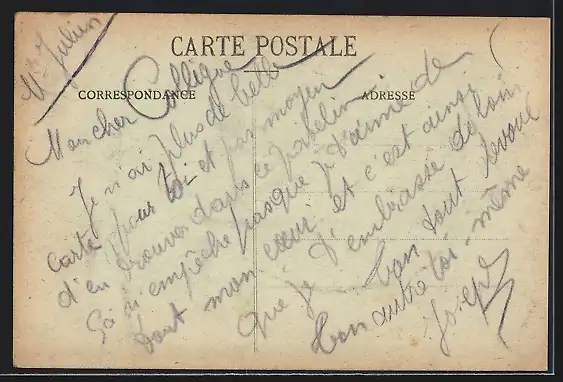 CARTE POSTALE
CORRESPONDANCE
ADRESSE
Mr Julien
Mon cher Collègue
Je n'ai plus de belle
carte pour toi et pas moyen
d'en trouver dans ce patelin
Ça n'empêche pas que je t'aime de
tout mon cœur et c'est ainsi
que je t'embrasse de loin
Ton tout dévoué
Ton autre toi-même
Joseph